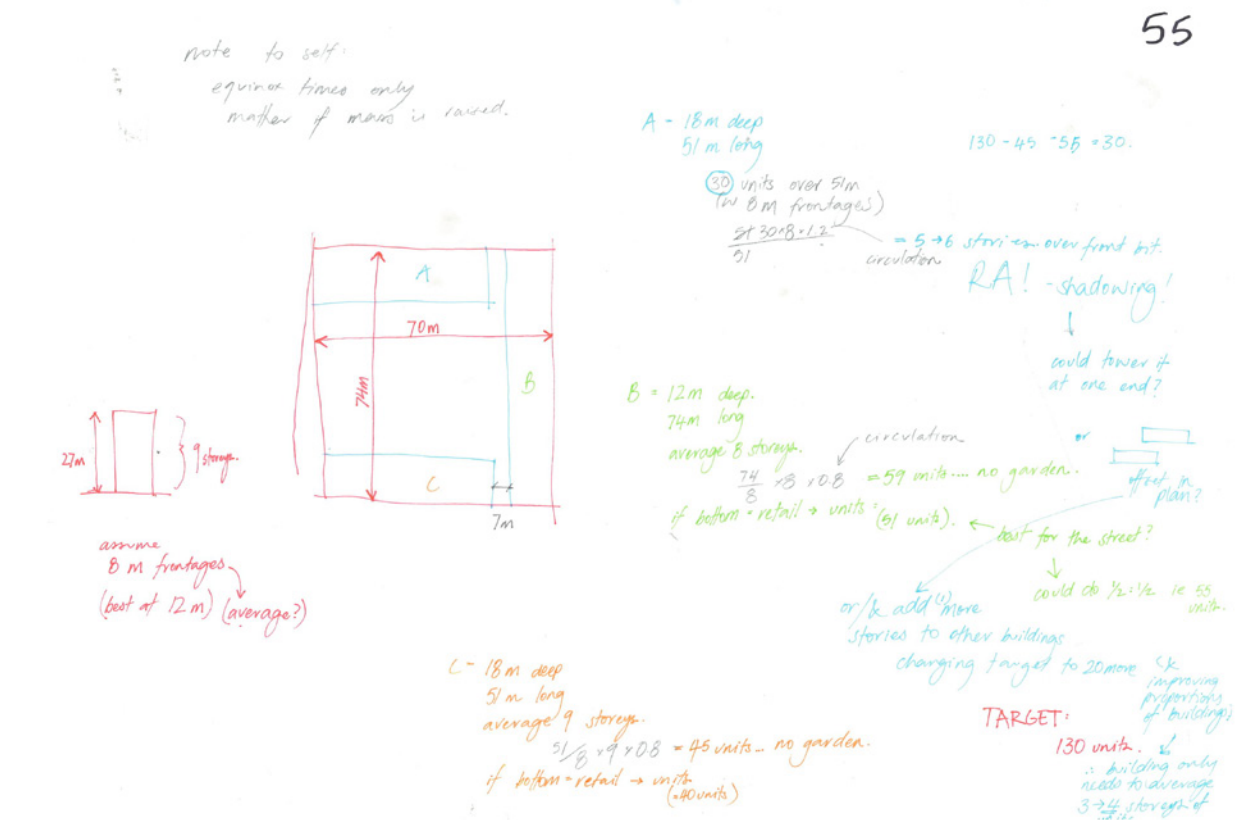 55
note to self:
equinox times only
matter if mass is raised.
A - 18m deep
51 m long
130 - 45 - 55 = 30.
30 units over 51m
(w 8m frontages)
51 30×8×1.2
51
circulation
= 5 → 6 stories over front bit.
RA! - shadowing!
could tower it
at one end?
or
offset in
plan?
A
70m
74m
B
C
7m
27m
9 storeys.
assume
8 m frontages
(best at 12m) (average?)
B = 12m deep.
74m long
average 8 storeys.
circulation
74
8
×8 ×0.8 = 59 units.... no garden.
if bottom = retail → units =
(51 units).
best for the street?
could do 1/2:1/2 ie 55
units.
or/& add (1) more
stories to other buildings
changing target to 20 more
(&
improving
proportions
of buildings)
C - 18m deep
51 m long
average 9 storeys.
51/8 ×9 ×0.8 = 45 units... no garden.
if bottom = retail → units
(=40 units)
TARGET:
130 units.
∴ building only
needs to average
3→4 storeys of